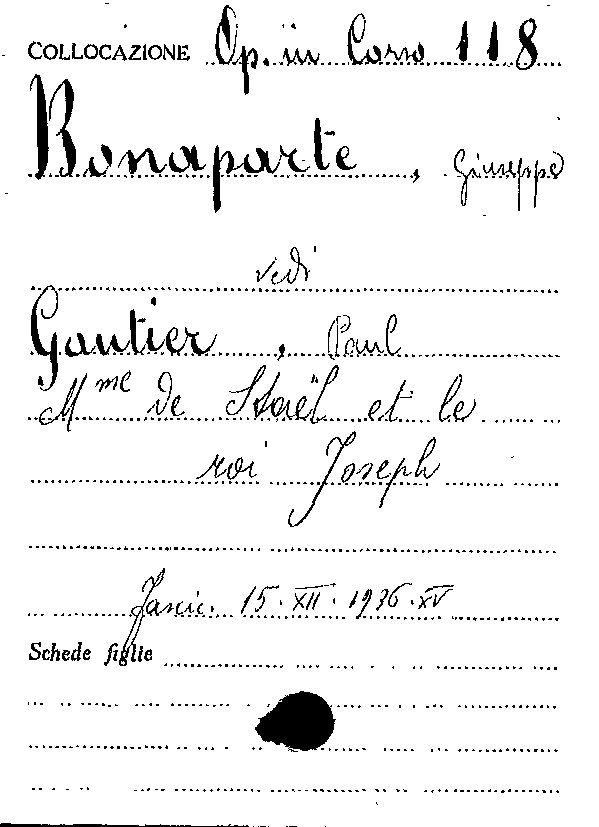 COLLOCAZIONE Op. in Corso 118
Bonaparte, Giuseppe
vedi
Gautier, Paul
Mme de Staël et le
roi Joseph
Fascic. 15.XII.1936.XV
Schede figlie